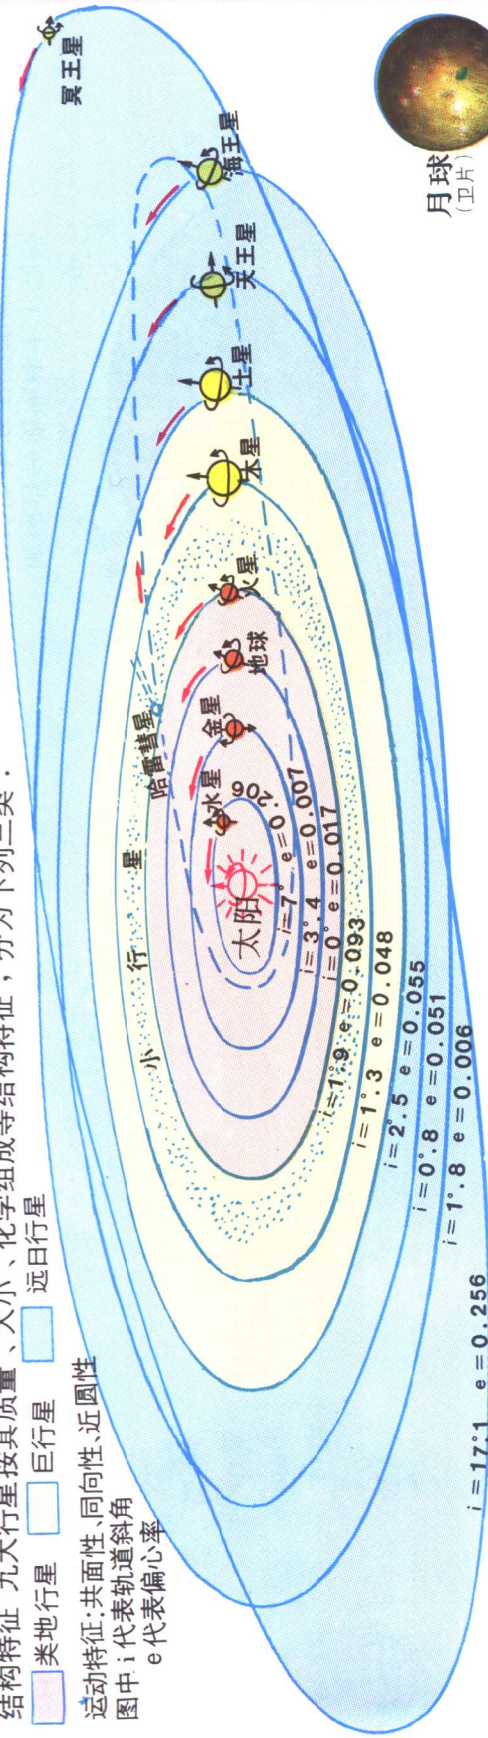 结构特征 九大行星按其质量、大小、化学组成等结构特征，分为下列三类．
类地行星 巨行星 远日行星
运动特征：共面性、同向性、近圆性
图中 i 代表轨道斜角
e 代表偏心率
太阳
水星
金星
地球
火星
木星
土星
天王星
海王星
冥王星
哈雷彗星
小行星
i=7° e=0.206
i=3°.4 e=0.007
i=0° e=0.017
i=1°.9 e=0.093
i=1°.3 e=0.048
i=2°.5 e=0.055
i=0°.8 e=0.051
i=1°.8 e=0.006
i=17°.1 e=0.256
月球
(卫片)